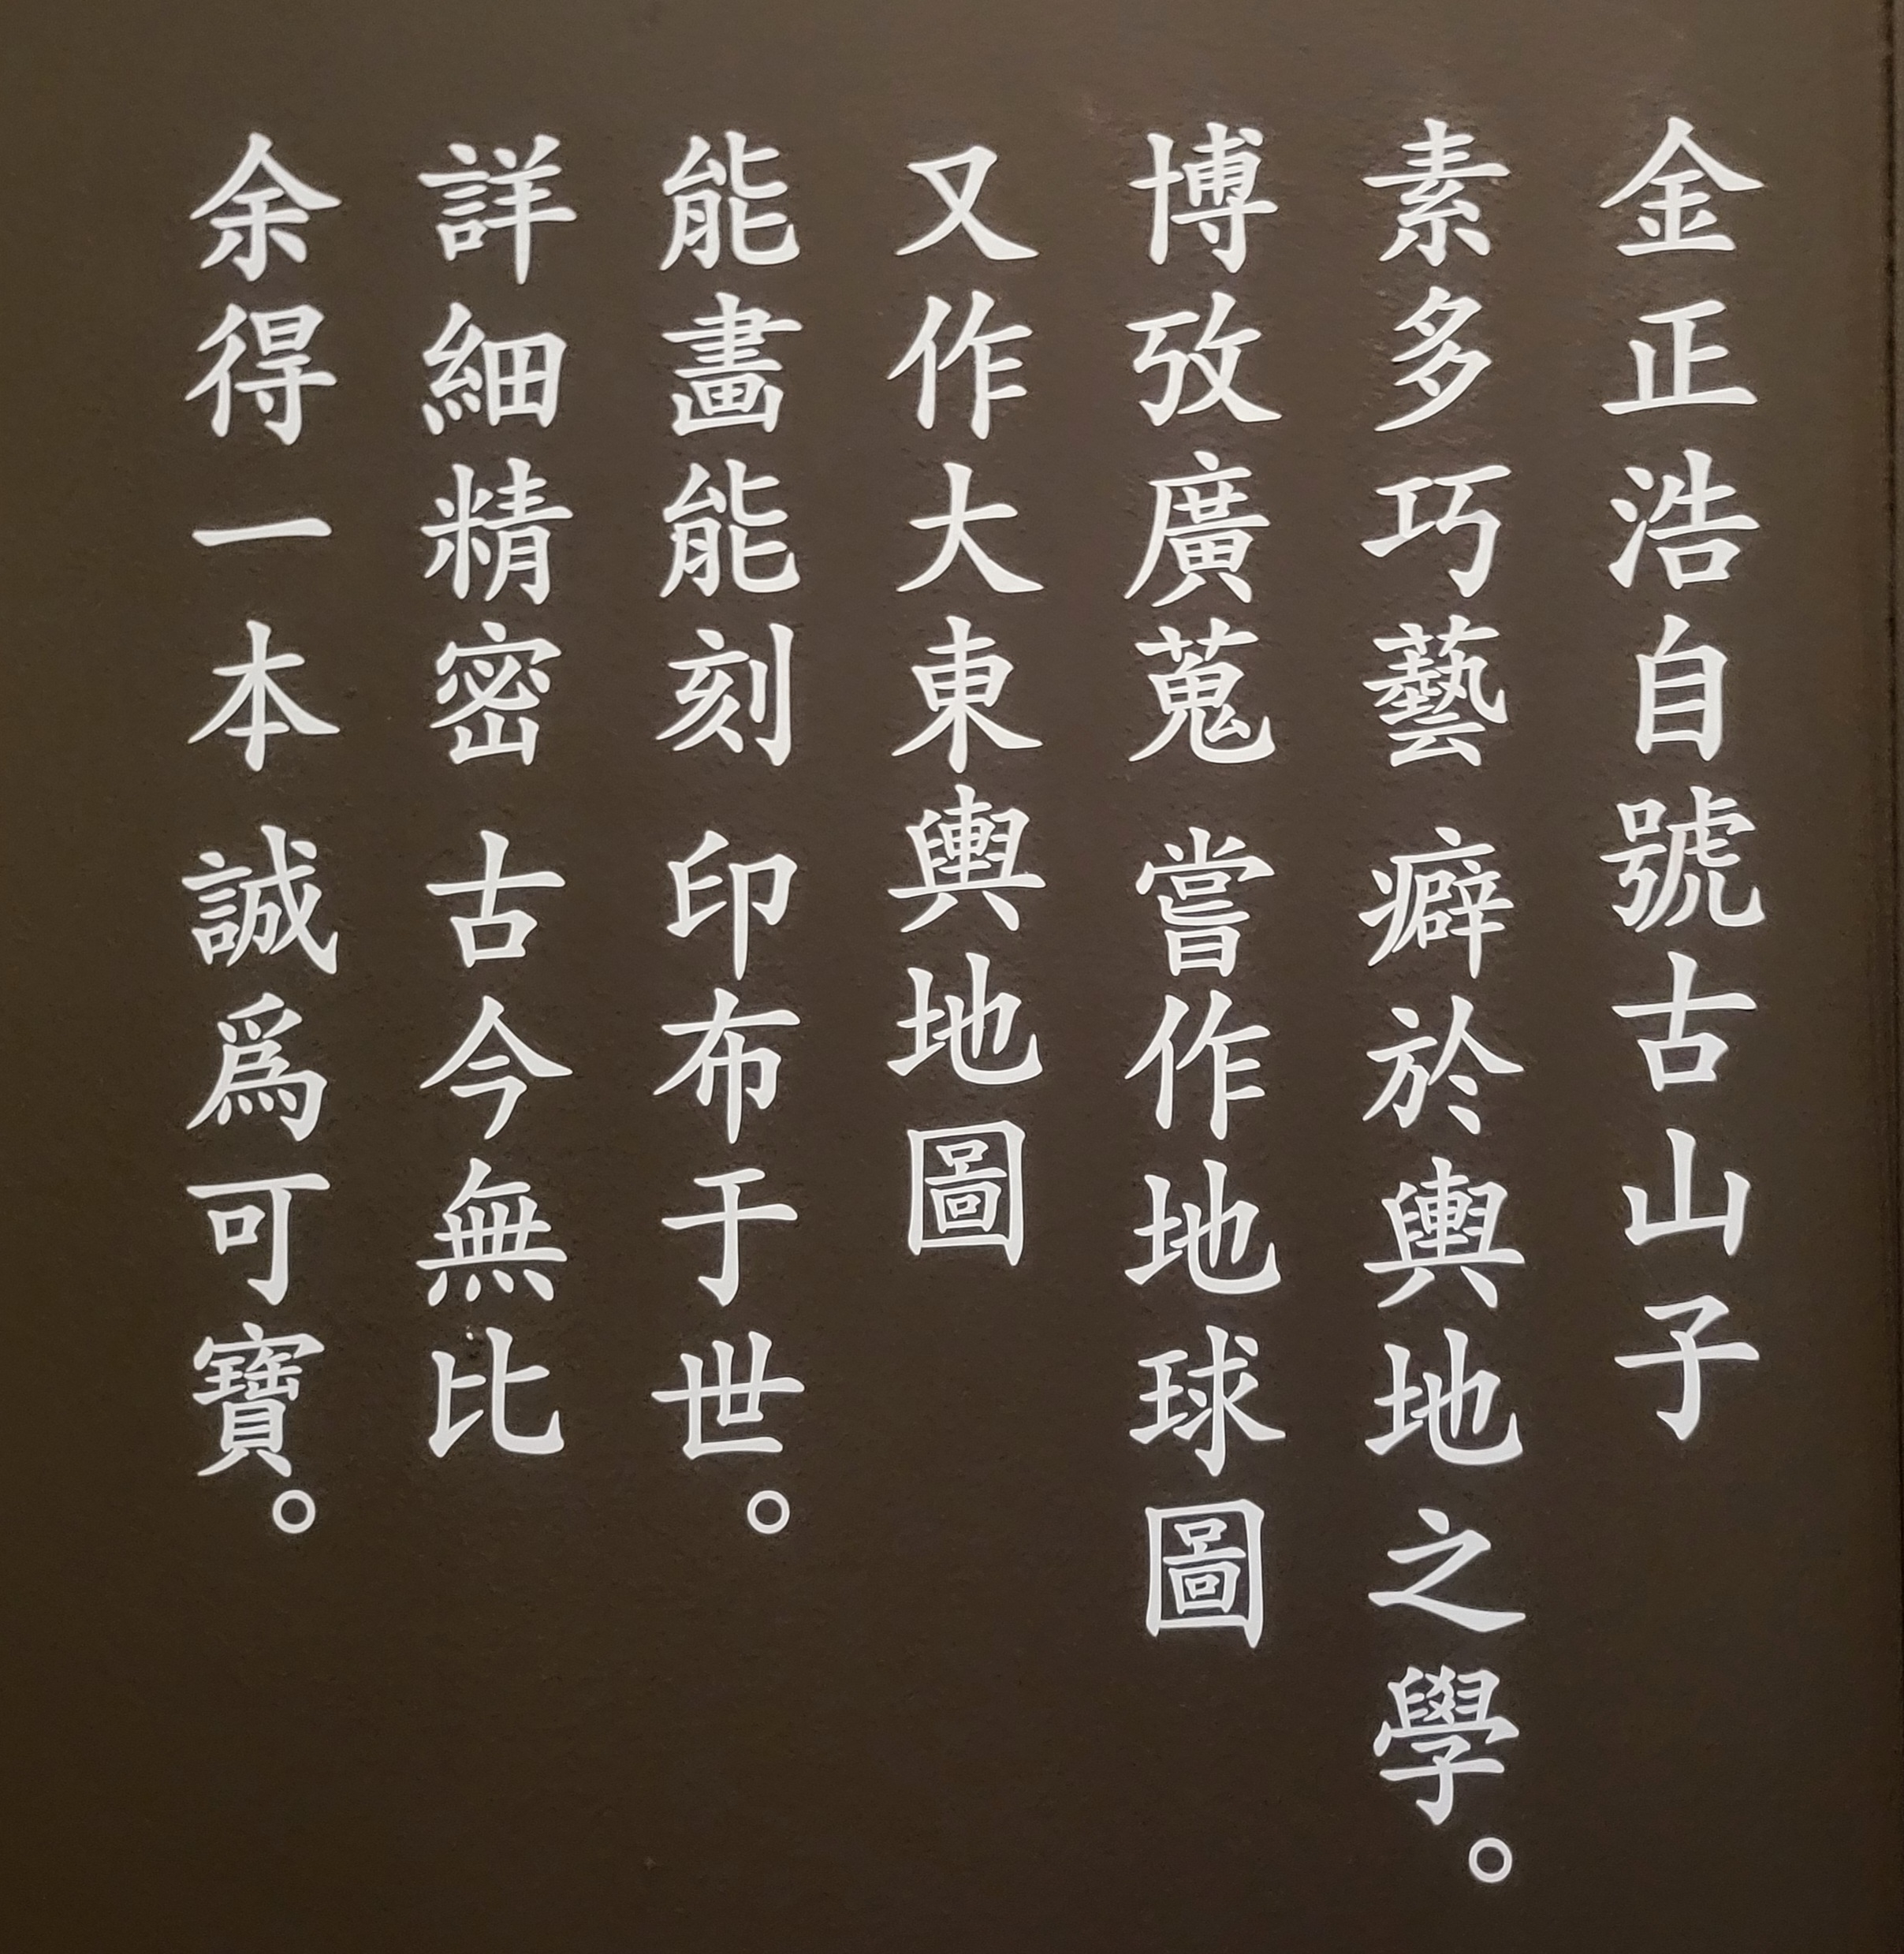 金正浩自號古山子
素多巧藝 癖於輿地之學。
博攷廣蒐 嘗作地球圖
又作大東輿地圖
能畫能刻 印布于世。
詳細精密 古今無比
余得一本 誠爲可寶。